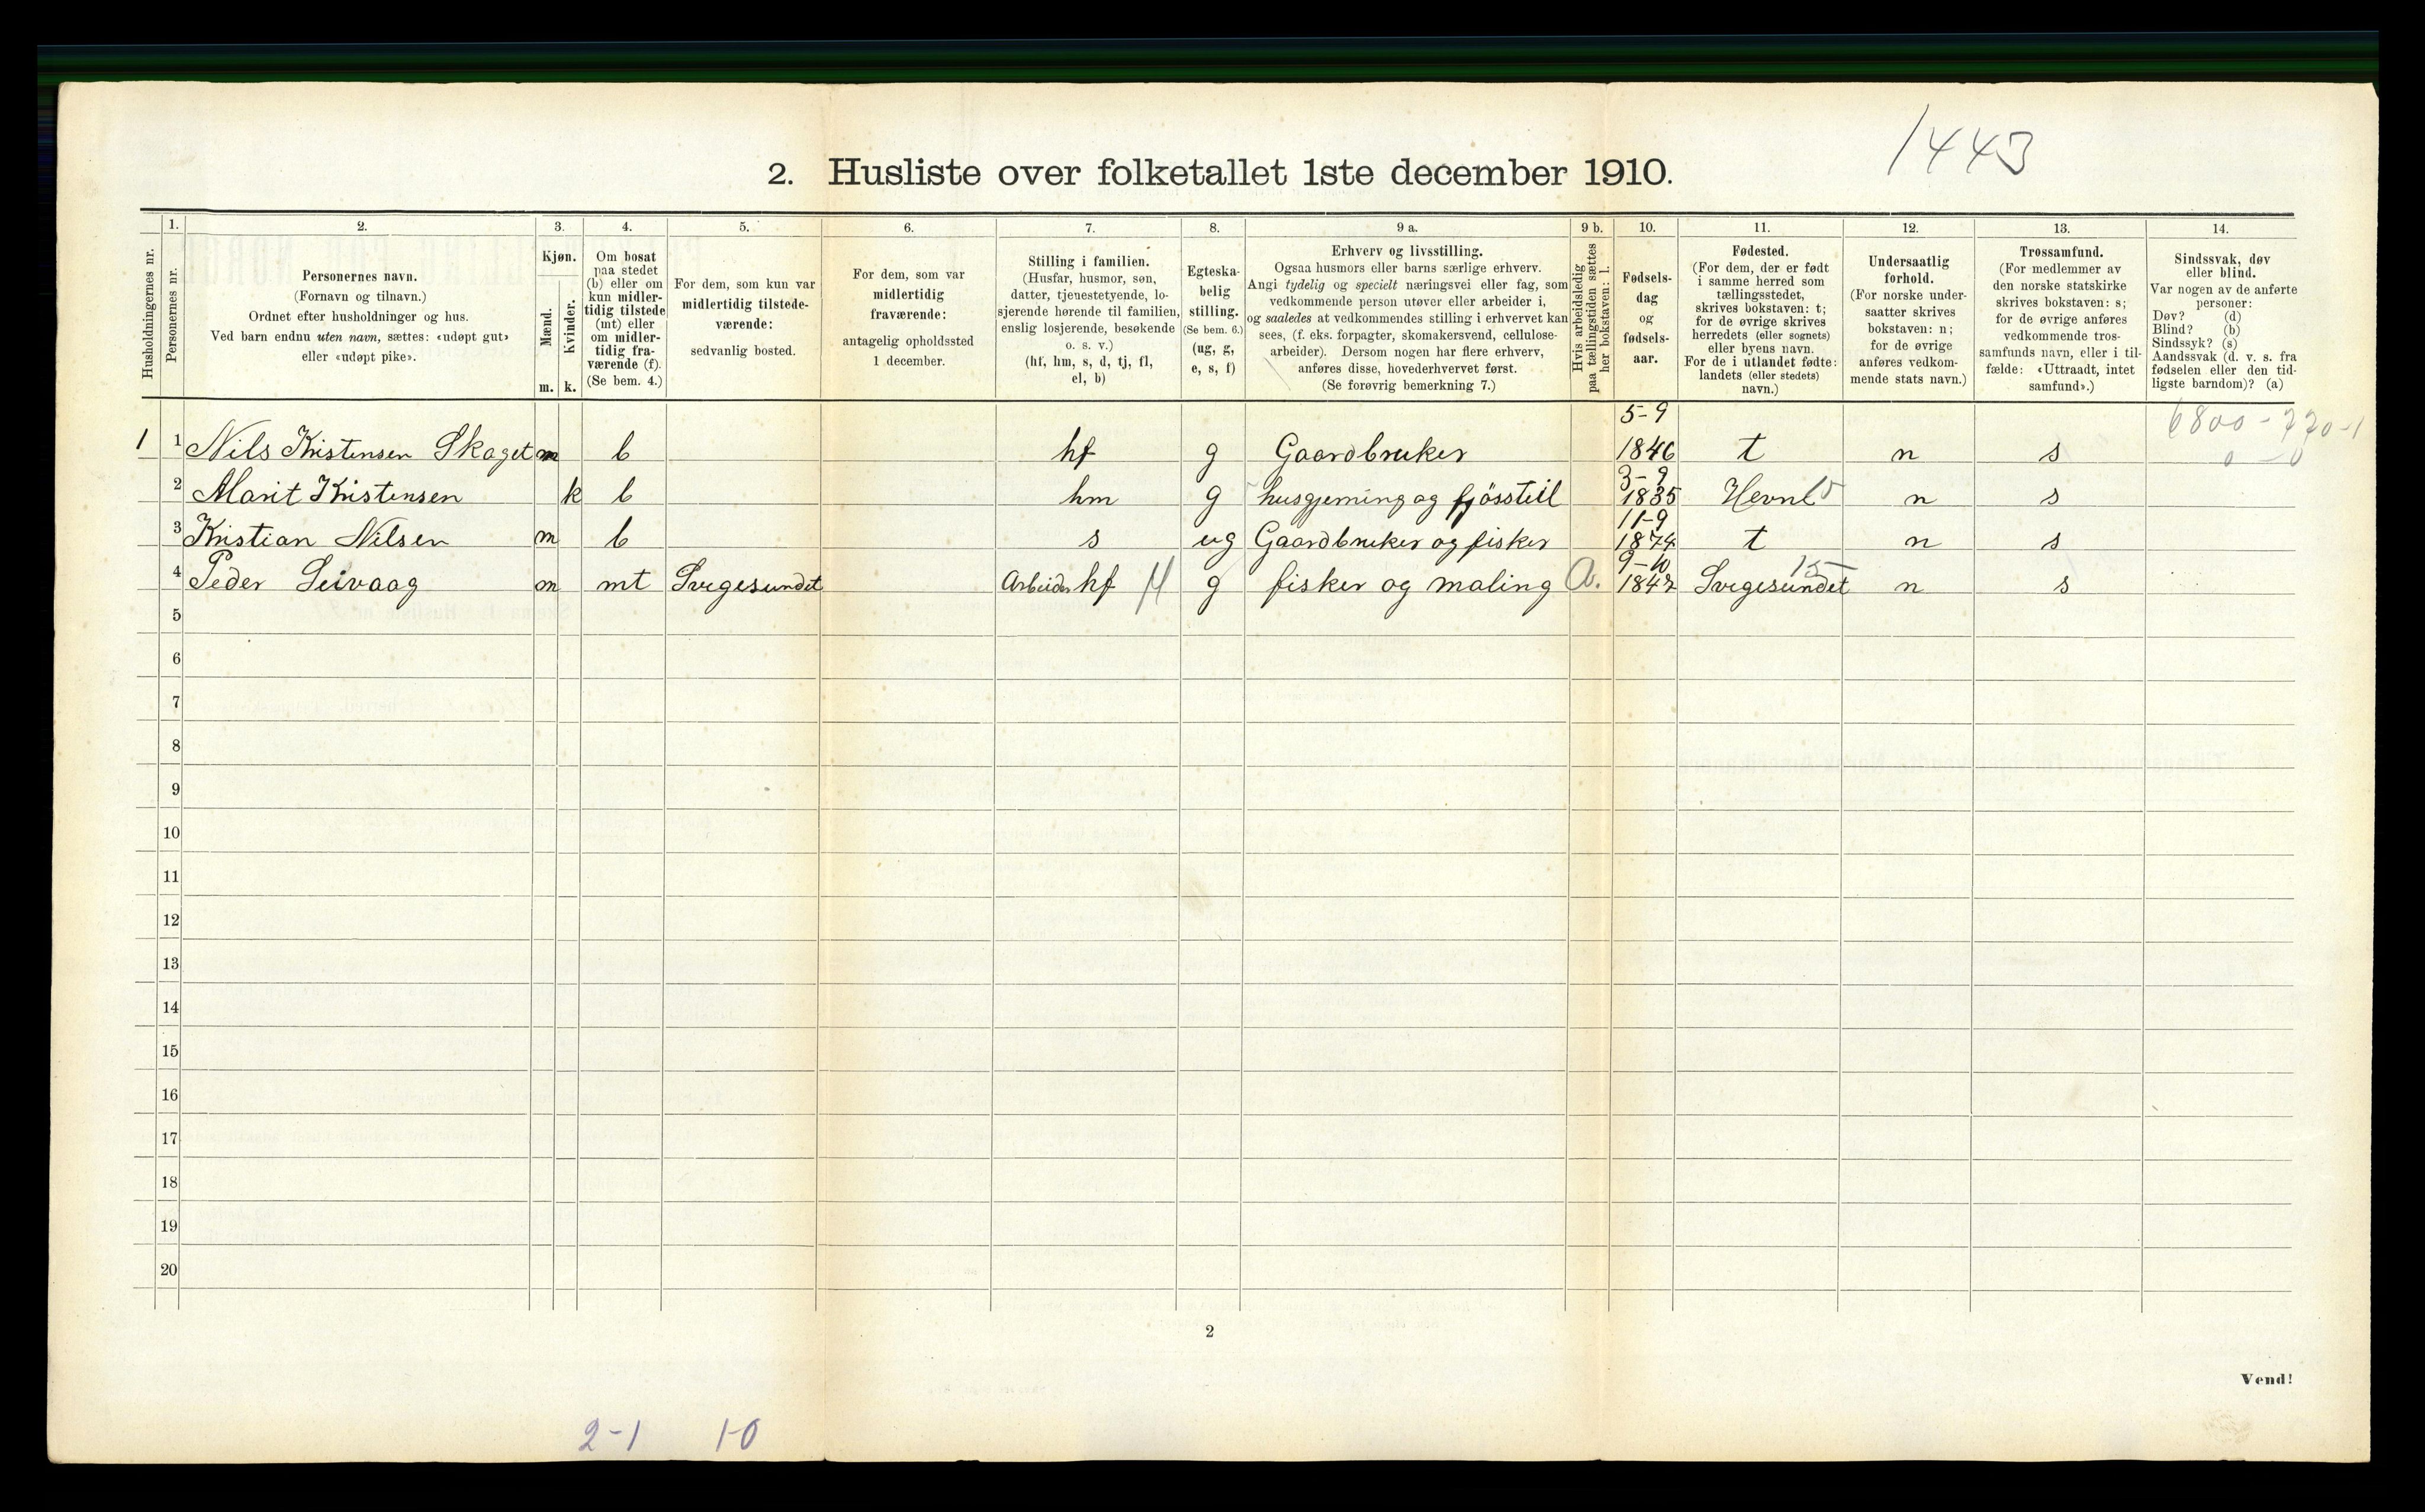 1443
2. Husliste over folketallet 1ste december 1910.
Husholdningernes nr.
1.
Personernes nr.
2.
Personernes navn.
(Fornavn og tilnavn.)
Ordnet efter husholdninger og hus.
Ved barn endnu uten navn, sættes: «udøpt gut»
eller «udøpt pike».
3.
Kjøn.
Mænd.
Kvinder.
m. k.
4.
Om bosat
paa stedet
(b) eller om
kun midler-
tidig tilstede
(mt) eller
om midler-
tidig fra-
værende (f).
(Se bem. 4.)
5.
For dem, som kun var
midlertidig tilstede-
værende:
sedvanlig bosted.
6.
For dem, som var
midlertidig
fraværende:
antagelig opholdssted
1 december.
7.
Stilling i familien.
(Husfar, husmor, søn,
datter, tjenestetyende, lo-
sjerende hørende til familien,
enslig losjerende, besøkende
o. s. v.)
(hf, hm, s, d, tj, fl,
el, b)
8.
Egteska-
belig
stilling.
(Se bem. 6.)
(ug, g,
e, s, f)
9 a.
Erhverv og livsstilling.
Ogsaa husmors eller barns særlige erhverv.
Angi tydelig og specielt næringsvei eller fag, som
vedkommende person utøver eller arbeider i,
og saaledes at vedkommendes stilling i erhvervet kan
sees, (f. eks. forpagter, skomakersvend, cellulose-
arbeider). Dersom nogen har flere erhverv,
anføres disse, hovederhvervet først.
(Se forøvrig bemerkning 7.)
9 b.
Hvis arbeidsledig
paa tællingstiden sættes
her bokstaven: l.
10.
Fødsels-
dag
og
fødsels-
aar.
11.
Fødested.
(For dem, der er født
i samme herred som
tællingsstedet,
skrives bokstaven: t;
for de øvrige skrives
herredets (eller sognets)
eller byens navn.
For de i utlandet fødte:
landets (eller stedets)
navn.)
12.
Undersaatlig
forhold.
(For norske under-
saatter skrives
bokstaven: n;
for de øvrige
anføres vedkom-
mende stats navn.)
13.
Trossamfund.
(For medlemmer av
den norske statskirke
skrives bokstaven: s;
for de øvrige anføres
vedkommende tros-
samfunds navn, eller i til-
fælde: «Uttraadt, intet
samfund».)
14.
Sindssvak, døv
eller blind.
Var nogen av de anførte
personer:
Døv? (d)
Blind? (b)
Sindssyk? (s)
Aandssvak (d. v. s. fra
fødselen eller den tid-
ligste barndom)? (a)
6800-770-1
0-0
5-9
1 1 Nils Kristensen Skaget m b hf g Gaardbruker 1846 t n s
3-9
2 Marit Kristensen k b hm g husgjerning og fjösstell 1835 Hevne 15 n s
11-9
3 Kristian Nilsen m b s ug Gaardbruker og fisker 1874 t n s
9-10 15
4 Peder Leivaag m mt Svegesundet Arbeider hf g fisker og maling a. 1847 Svegesundet n s
5
6
7
8
9
10
11
12
13
14
15
16
17
18
19
20
2
Vend!
2-1 1-0